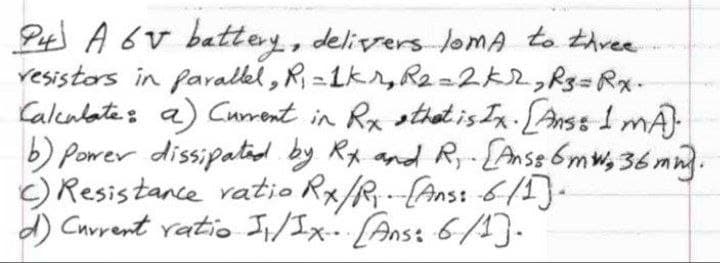 P4) A 6V battery, delivers 10mA to three
resistors in parallel, R₁=1kΩ, R2=2kΩ, R3=Rx.
Calculate: a) Current in Rx, that is Ix. [Ans: 1 mA].
b) Power dissipated by Rx and R₁. [Ans: 6mW, 36 mW].
c) Resistance ratio Rx/R₁.. [Ans: 6/1].
d) Current ratio I₁/Ix.. [Ans: 6/1].